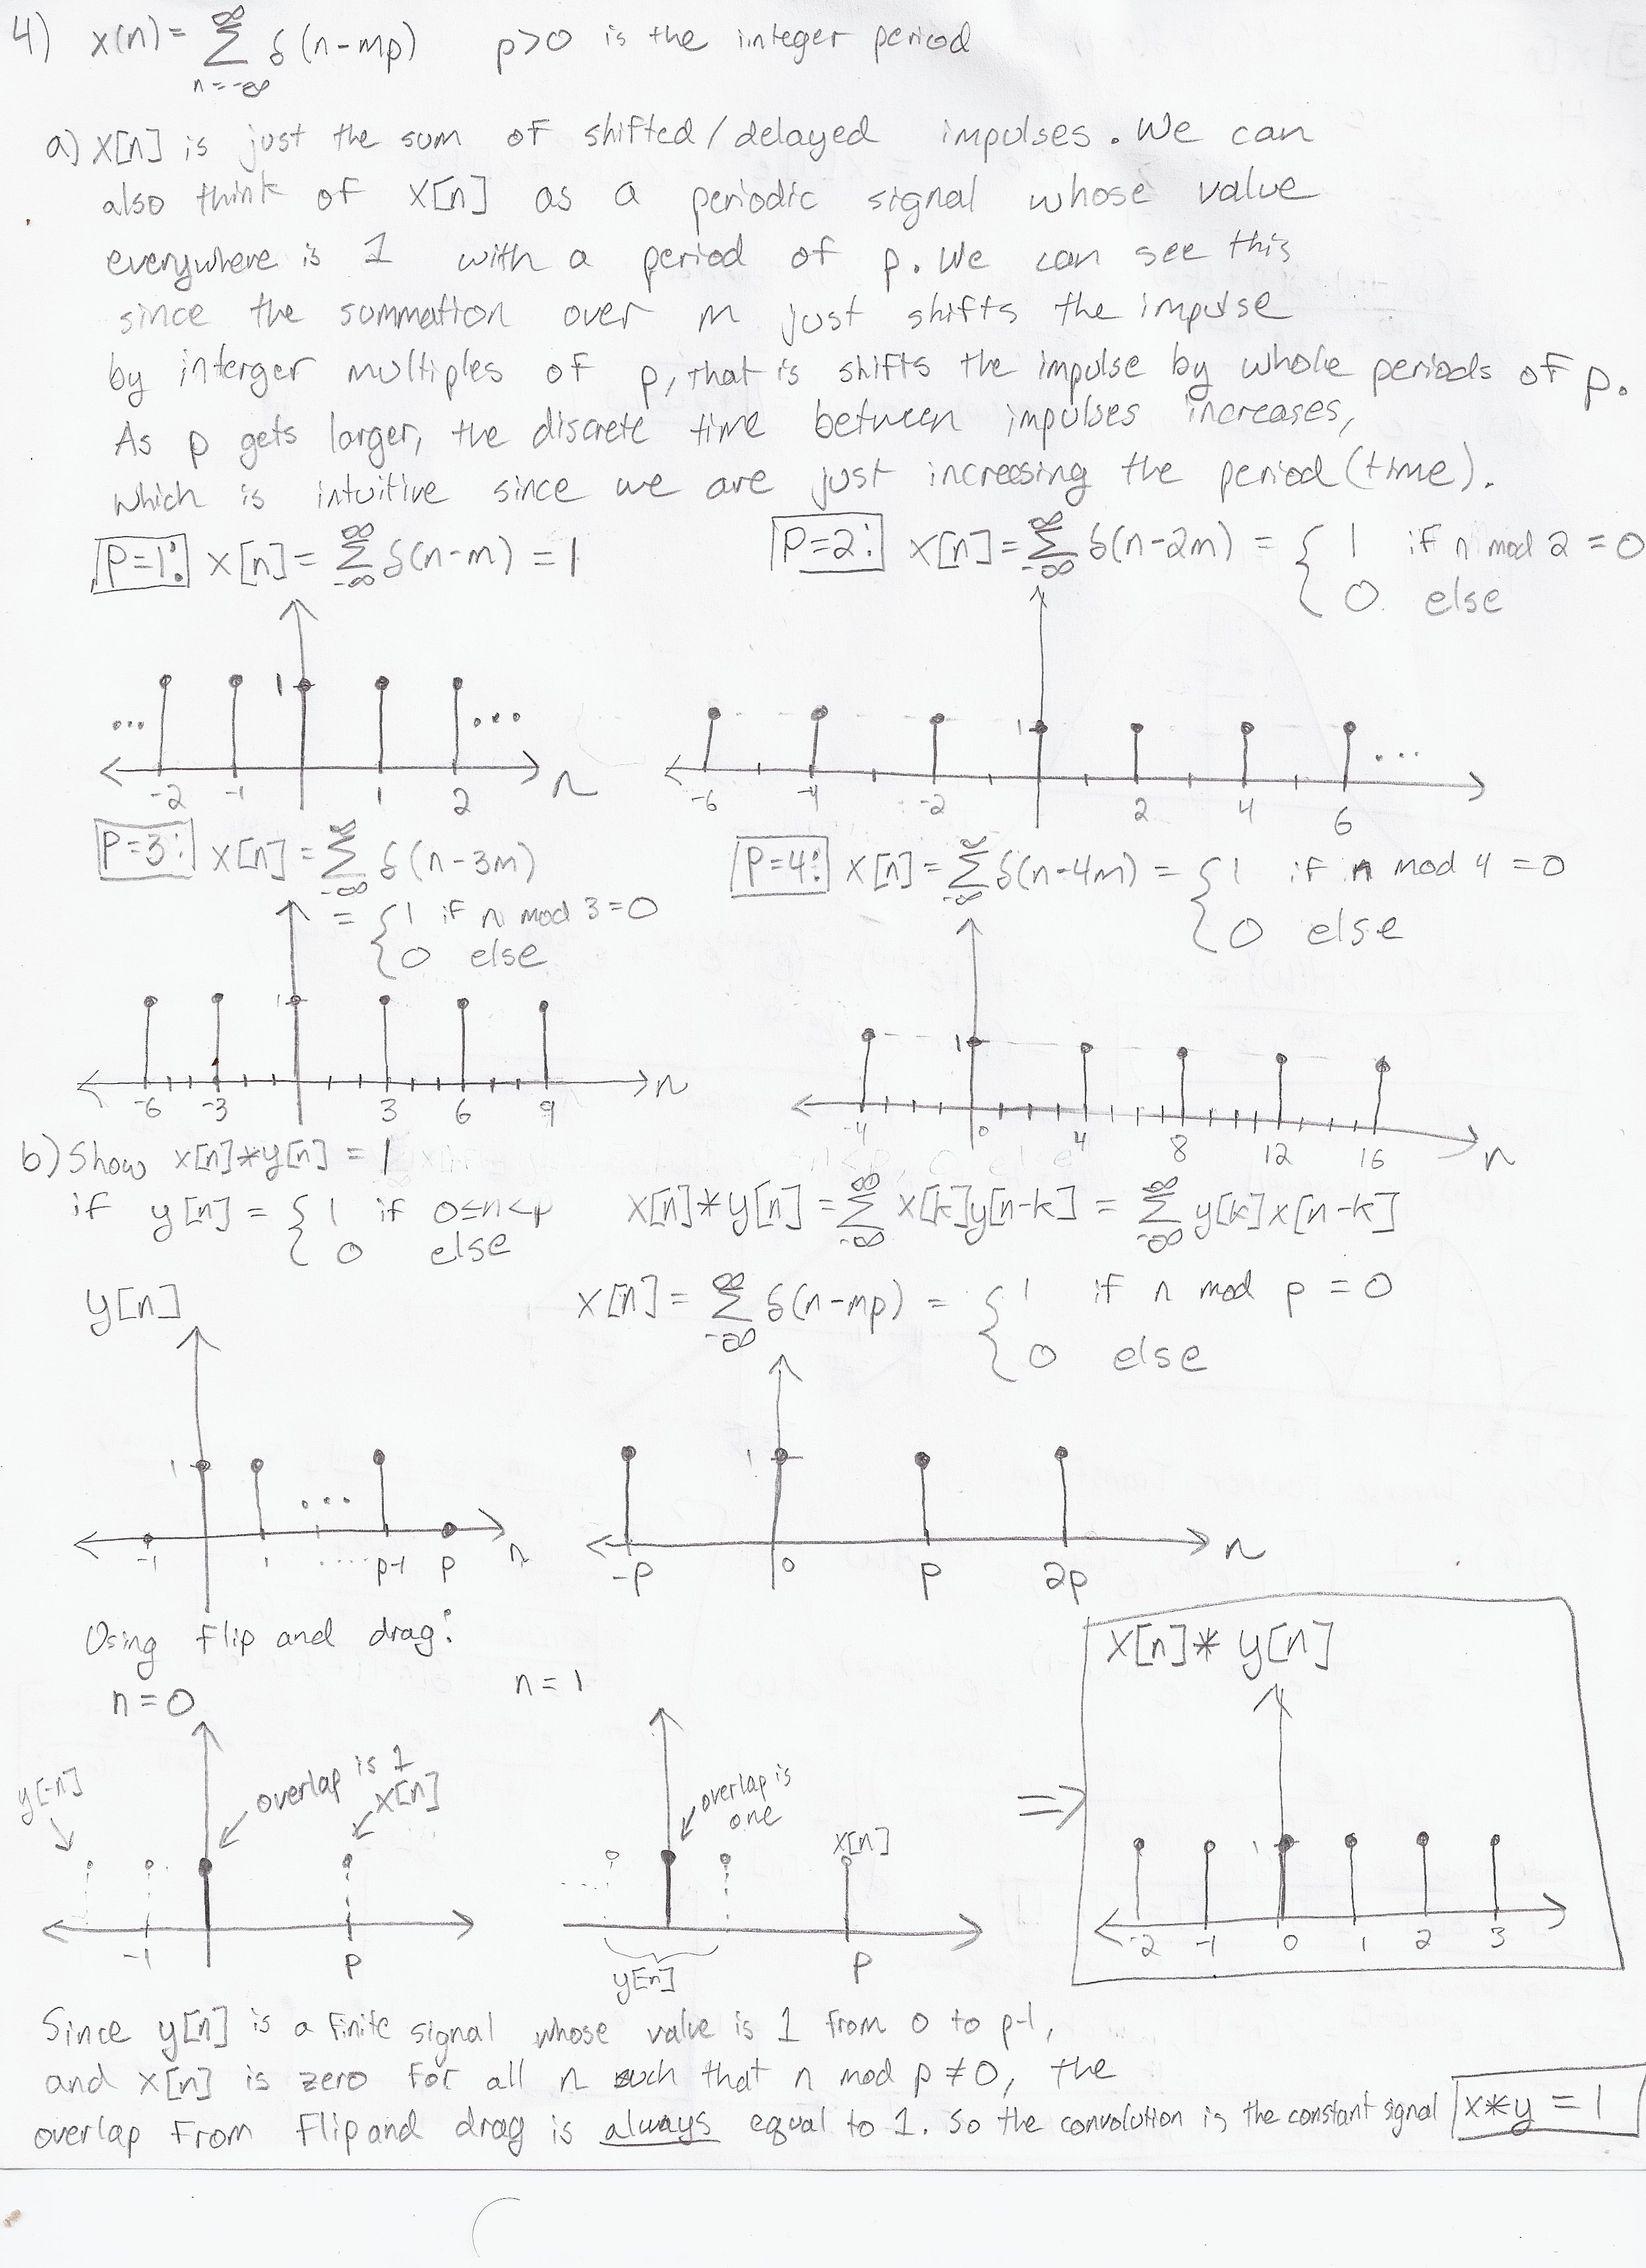 4) x(n) = ∞ Σ n=-∞ δ(n-mp) p>0 is the integer period
a) x[n] is just the sum of shifted/delayed impulses. We can
also think of x[n] as a periodic signal whose value
everywhere is 1 with a period of p. We can see this
since the summation over m just shifts the impulse
by interger multiples of p, that is shifts the impulse by whole periods of p.
As p gets larger, the discrete time between impulses increases,
which is intuitive since we are just increasing the period (time).
P=1: x[n] = ∞ Σ -∞ δ(n-m) = 1
P=2: x[n] = ∞ Σ -∞ δ(n-2m) = { 1 if n mod 2 = 0
0 else
1
... ...
-2 -1 1 2 n
1
...
-6 -4 -2 2 4 6
P=3: x[n] = ∞ Σ -∞ δ(n-3m)
= { 1 if n mod 3 = 0
0 else
P=4: x[n] = ∞ Σ -∞ δ(n-4m) = { 1 if n mod 4 = 0
0 else
1
-6 -3 3 6 9 n
1
-4 0 4 8 12 16 n
b) Show x[n]*y[n] = 1
if y[n] = { 1 if 0≤n<p
0 else
x[n]*y[n] = ∞ Σ -∞ x[k]y[n-k] = ∞ Σ -∞ y[k]x[n-k]
x[n] = ∞ Σ -∞ δ(n-mp) = { 1 if n mod p = 0
0 else
y[n]
1
...
-1 1 .... p-1 p n
1
-p 0 p 2p n
Using flip and drag:
n=0
y[-n]
overlap is 1
x[n]
-1 p
n=1
overlap is
one
x[n]
p
y[n]
⇒
x[n]*y[n]
1
-2 -1 0 1 2 3
Since y[n] is a finite signal whose value is 1 from 0 to p-1,
and x[n] is zero for all n such that n mod p ≠ 0, the
overlap from flip and drag is always equal to 1. So the convolution is the constant signal x*y = 1